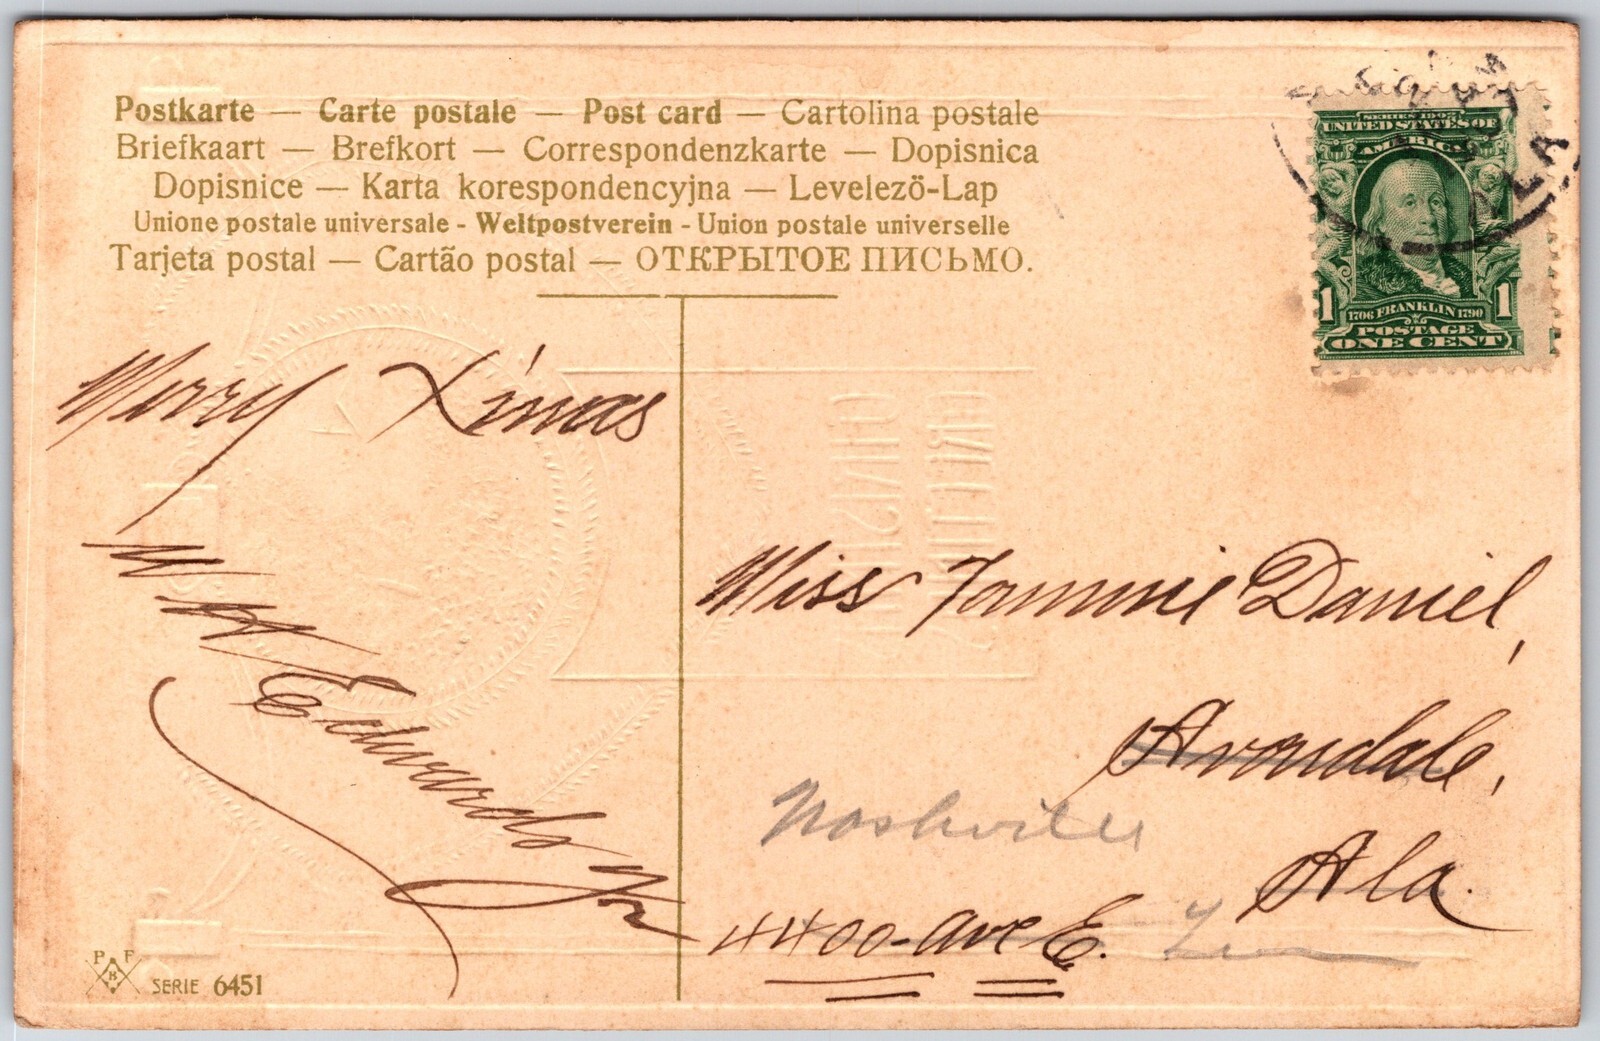 Postkarte — Carte postale — Post card — Cartolina postale
Briefkaart — Brefkort — Correspondenzkarte — Dopisnica
Dopisnice — Karta korespondencyjna — Levelezö-Lap
Unione postale universale - Weltpostverein - Union postale universelle
Tarjeta postal — Cartão postal — ОТКРЫТОЕ ПИСЬМО.
UNITED STATES OF
AMERICA
1 1706 FRANKLIN 1790 1
POSTAGE
ONE CENT
ALA
Merry Xmas
Edwards Jr
Miss Tommie Daniel,
Avondale,
Nashville
Ala.
4400-Ave E.
P F
B
SERIE 6451